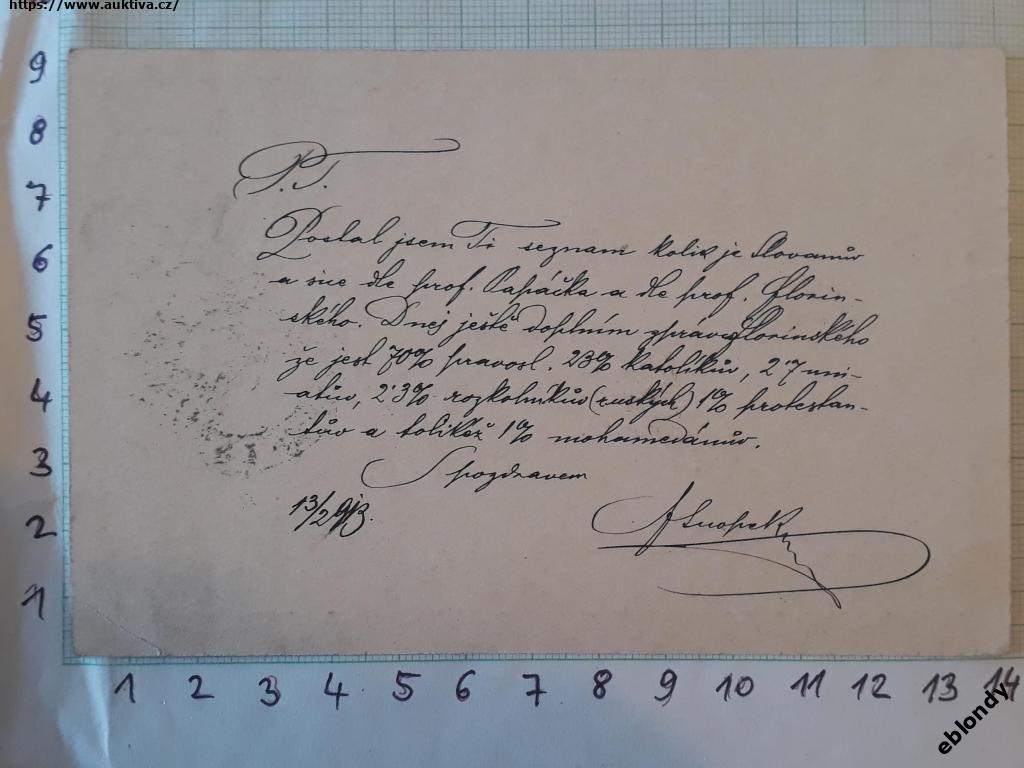 https://www.auktiva.cz/
P.T.
Poslal jsem Ti seznam kolik je Slovanův
a sice dle prof. a dle prof. Florin-
ského. Dnes ještě doplním zprávu Florinského
že jest 70% pravosl. 23% katolíkův, 2·7 uni-
atův, 2·3% rozkolníkův (ruských) 1% protestan-
tův a tolikéž 1% mohamedánův.
S pozdravem
13/2
9
8
7
6
5
4
3
2
1
1 2 3 4 5 6 7 8 9 10 11 12 13 14
eblondy